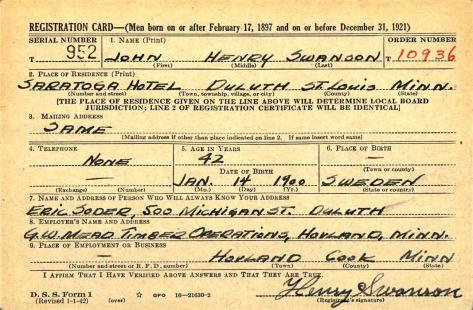 REGISTRATION CARD—(Men born on or after February 17, 1897 and on or before December 31, 1921)
SERIAL NUMBER 1. NAME (Print) ORDER NUMBER
T 952 JOHN HENRY SWANSON T 10936
(First) (Middle) (Last)
2. PLACE OF RESIDENCE (Print)
SARATOGA HOTEL DULUTH ST. LOUIS MINN.
(Number and street) (Town, township, village, or city) (County) (State)
[THE PLACE OF RESIDENCE GIVEN ON THE LINE ABOVE WILL DETERMINE LOCAL BOARD
JURISDICTION; LINE 2 OF REGISTRATION CERTIFICATE WILL BE IDENTICAL]
3. MAILING ADDRESS
SAME
(Mailing address if other than place indicated on line 2. If same insert word same)
4. TELEPHONE 5. AGE IN YEARS 6. PLACE OF BIRTH
NONE 42 —
DATE OF BIRTH (Town or county)
— JAN. 14 1900 SWEDEN
(Exchange) (Number) (Mo.) (Day) (Yr.) (State or country)
7. NAME AND ADDRESS OF PERSON WHO WILL ALWAYS KNOW YOUR ADDRESS
ERIC SODER, 500 MICHIGAN ST. DULUTH
8. EMPLOYER'S NAME AND ADDRESS
G.W. MEAD TIMBER OPERATIONS, HOVLAND, MINN.
9. PLACE OF EMPLOYMENT OR BUSINESS
— HOVLAND COOK MINN
(Number and street or R. F. D. number) (Town) (County) (State)
I AFFIRM THAT I HAVE VERIFIED ABOVE ANSWERS AND THAT THEY ARE TRUE.
D. S. S. Form 1
(Revised 1-1-42) (over) ☆ GPO 16—21630-2 Henry Swanson
(Registrant's signature)